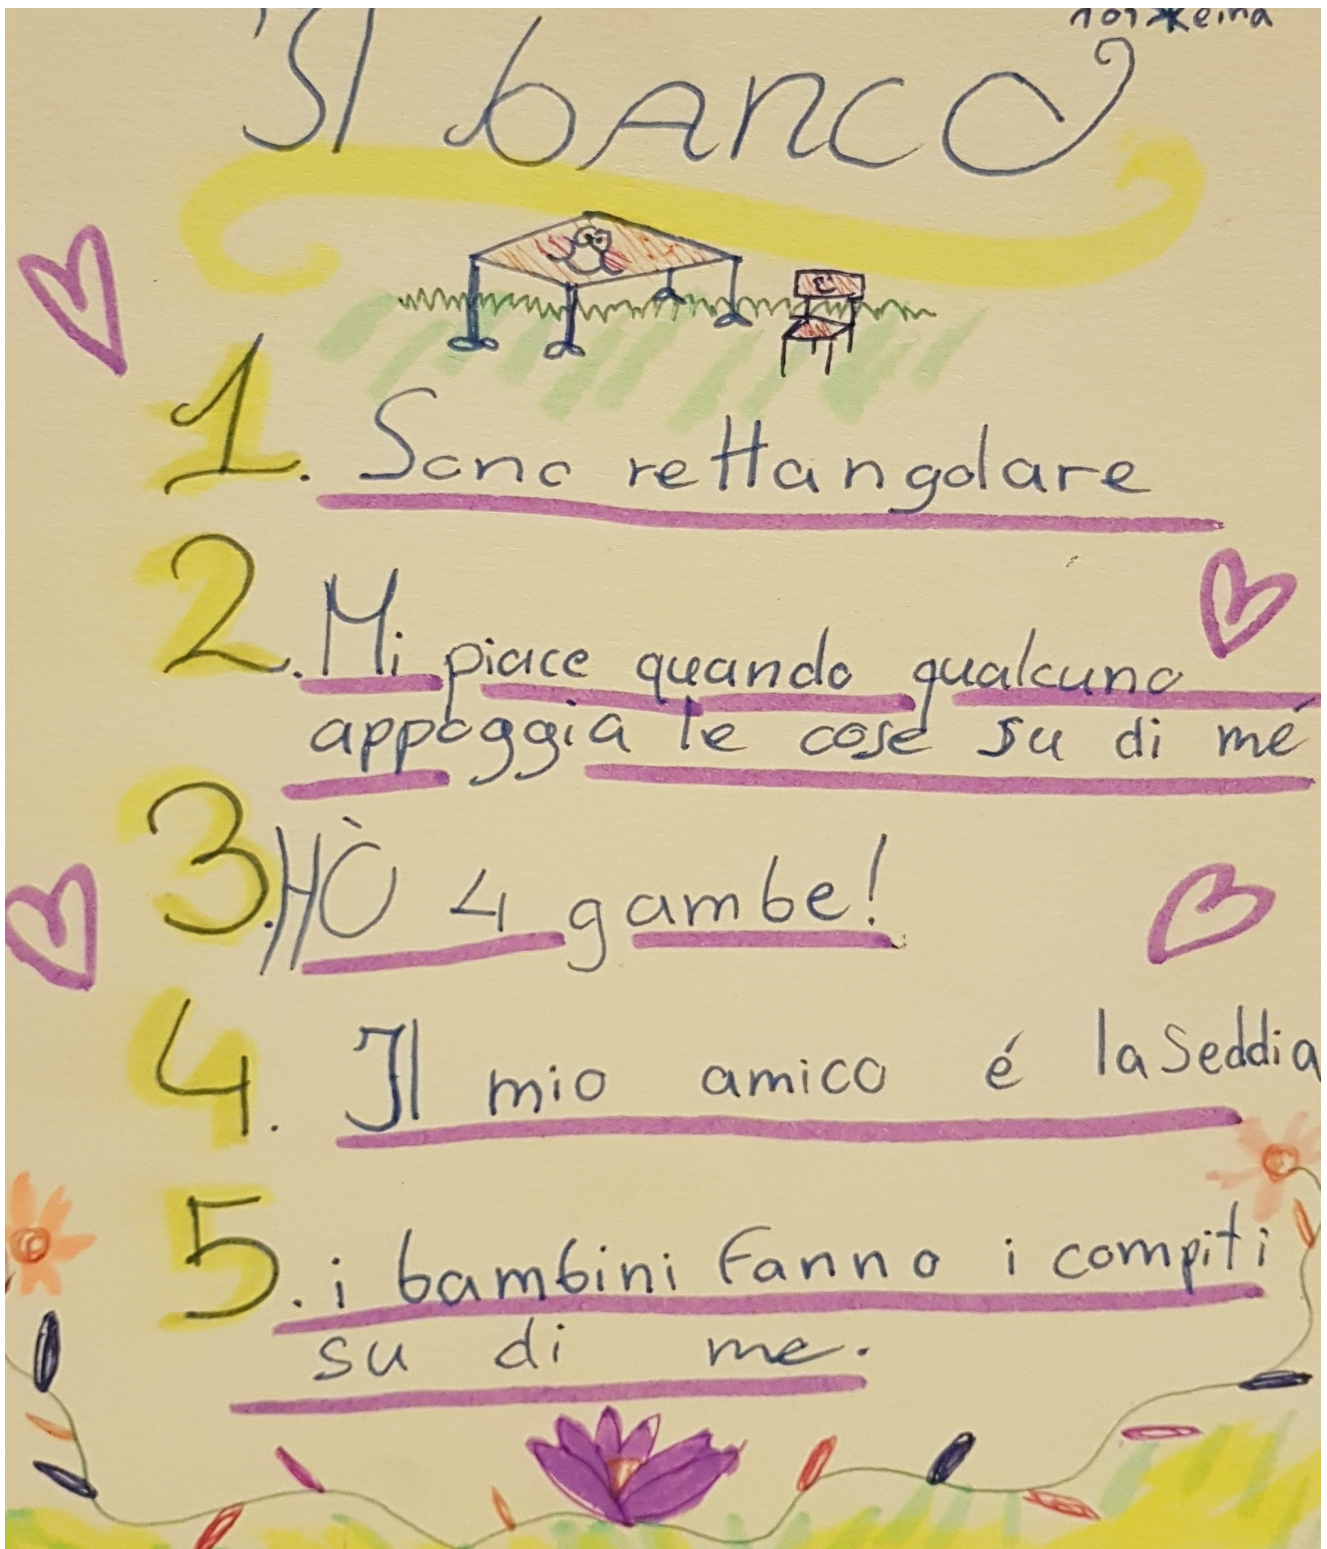 Il banco
1. Sono rettangolare
2. Mi piace quando qualcuno
appoggia le cose su di mé
3. HÒ 4 gambe!
4. Il mio amico é la Seddia
5. i bambini fanno i compiti
su di me.